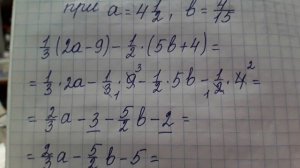 при a = 4 1/2, b = 4/15
1/3 (2a - 9) - 1/2 · (5b + 4) =
= 1/3 · 2a - 1/3 · 9 - 1/2 · 5b - 1/2 · 4 =
= 2/3 a - 3 - 5/2 b - 2 =
= 2/3 a - 5/2 b - 5 =